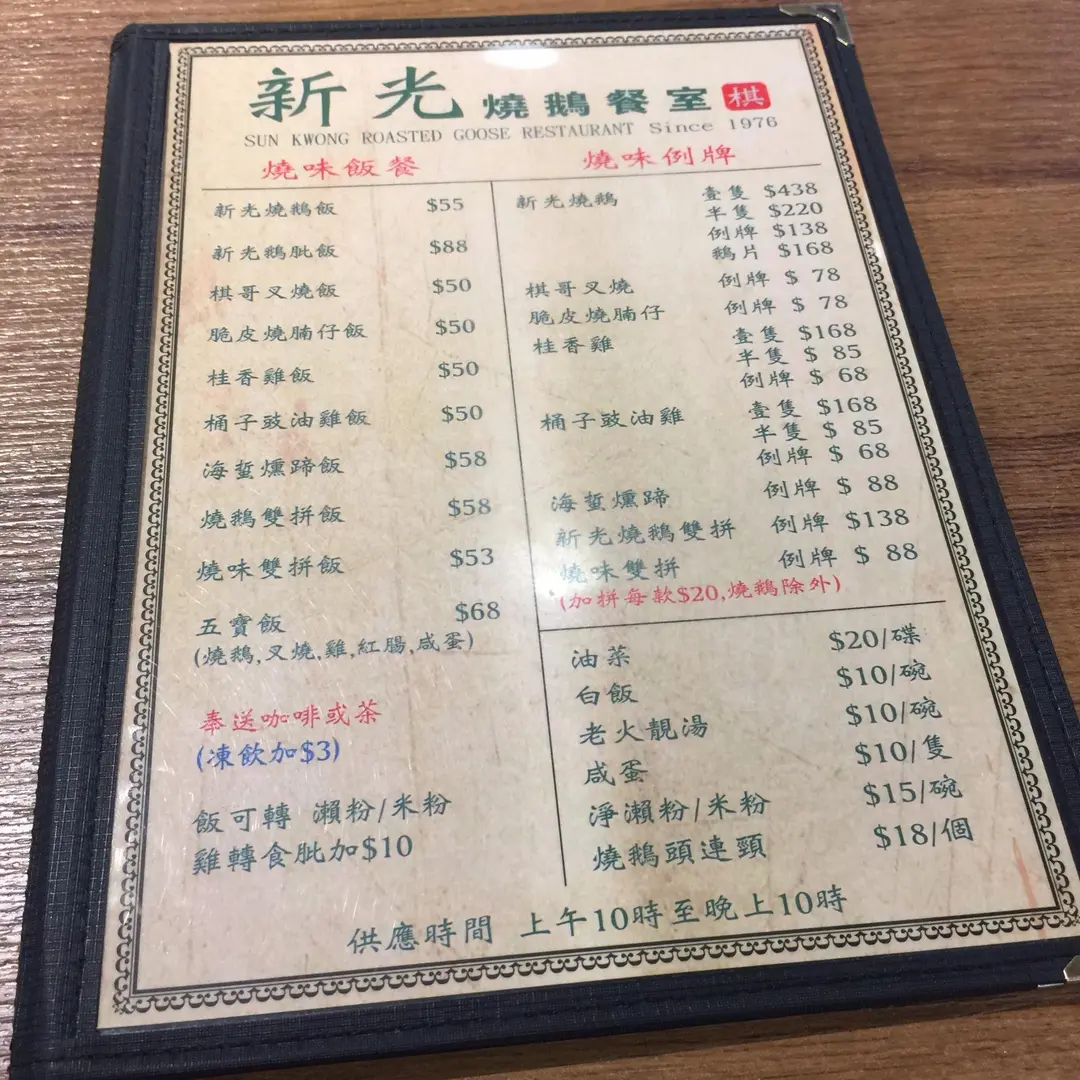 新光 燒鵝餐室 棋
SUN KWONG ROASTED GOOSE RESTAURANT Since 1976
燒味飯餐
新光燒鵝飯 $55
新光鵝肶飯 $88
棋哥叉燒飯 $50
脆皮燒腩仔飯 $50
桂香雞飯 $50
桶子豉油雞飯 $50
海蜇燻蹄飯 $58
燒鵝雙拼飯 $58
燒味雙拼飯 $53
五寶飯 $68
(燒鵝,叉燒,雞,紅腸,咸蛋)
奉送咖啡或茶
(凍飲加$3)
飯可轉 瀨粉/米粉
雞轉食肶加$10
燒味例牌
新光燒鵝 壹隻 $438
半隻 $220
例牌 $138
鵝片 $168
棋哥叉燒 例牌 $ 78
脆皮燒腩仔 例牌 $ 78
桂香雞 壹隻 $168
半隻 $ 85
例牌 $ 68
桶子豉油雞 壹隻 $168
半隻 $ 85
例牌 $ 68
海蜇燻蹄 例牌 $ 88
新光燒鵝雙拼 例牌 $138
燒味雙拼 例牌 $ 88
(加拼每款$20,燒鵝除外)
油菜 $20/碟
白飯 $10/碗
老火靚湯 $10/碗
咸蛋 $10/隻
淨瀨粉/米粉 $15/碗
燒鵝頭連頸 $18/個
供應時間 上午10時至晚上10時